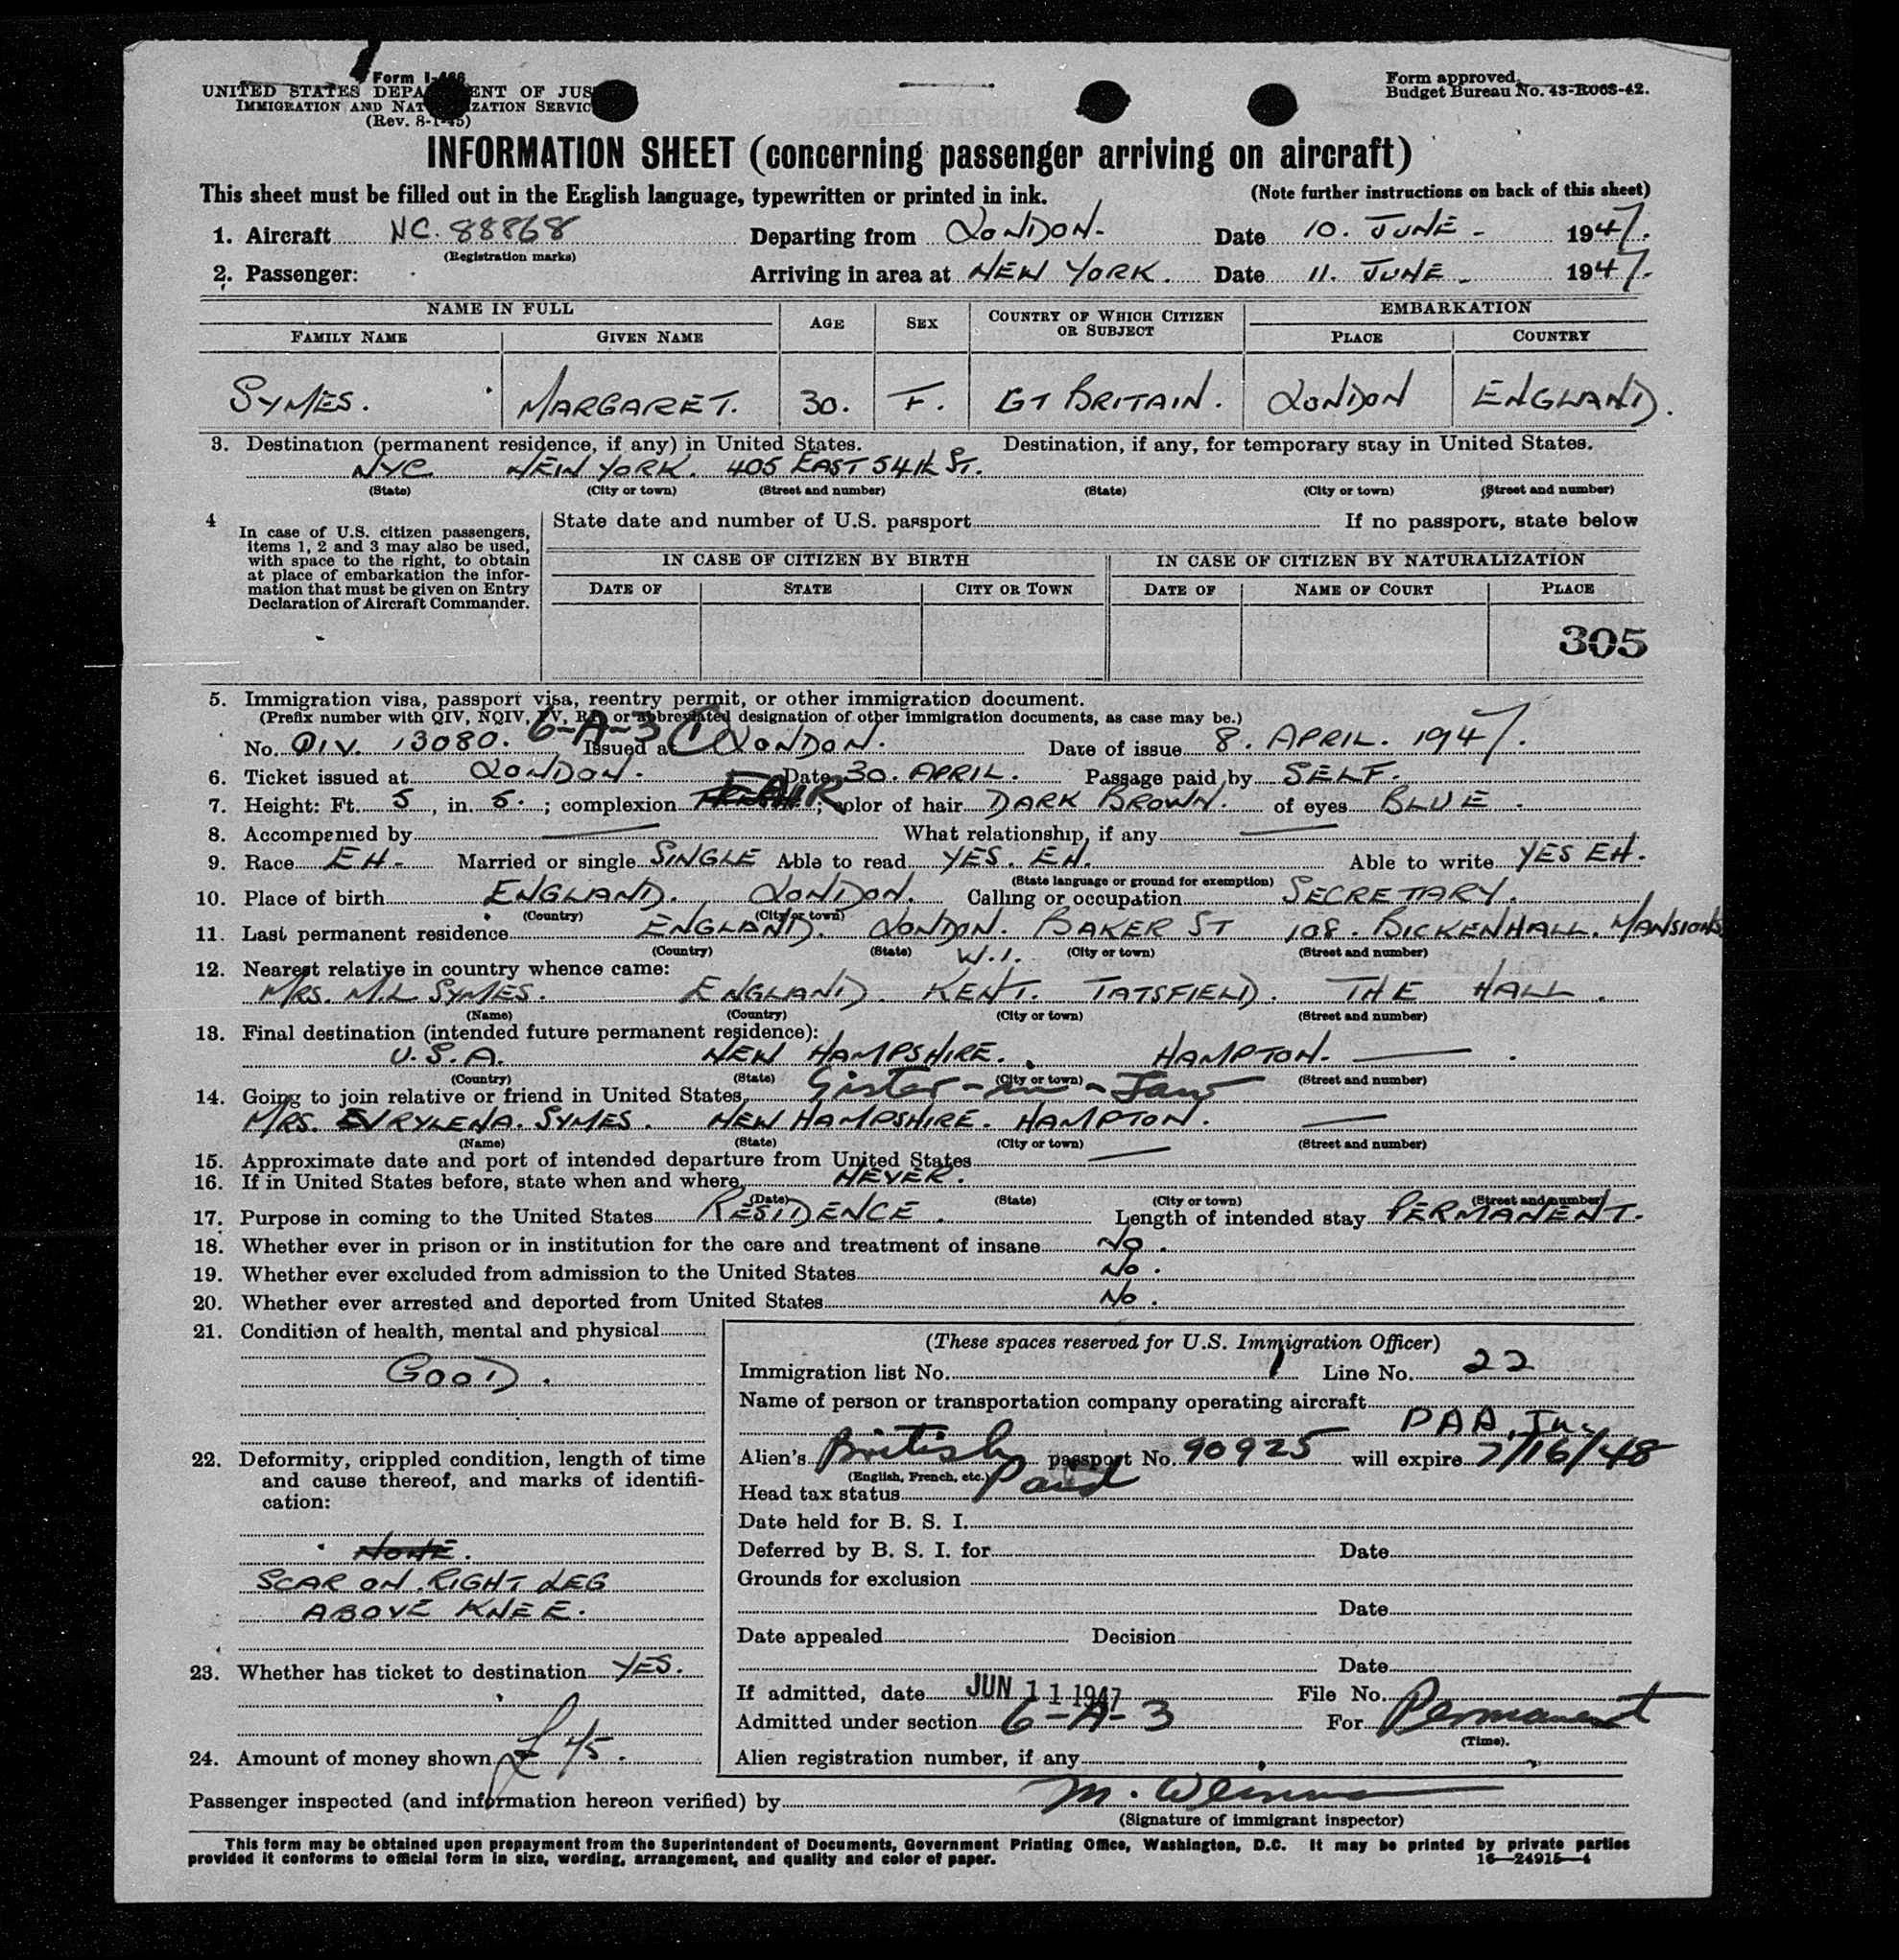 Form I-466
UNITED STATES DEPARTMENT OF JUSTICE
IMMIGRATION AND NATURALIZATION SERVICE
(Rev. 8-1-45)
Form approved.
Budget Bureau No. 43-R068-42.
INFORMATION SHEET (concerning passenger arriving on aircraft)
This sheet must be filled out in the English language, typewritten or printed in ink. (Note further instructions on back of this sheet)
1. Aircraft NC. 88868 Departing from LONDON. Date 10. JUNE - 1947.
(Registration marks)
2. Passenger: Arriving in area at NEW YORK. Date 11. JUNE. 1947.
NAME IN FULL AGE SEX COUNTRY OF WHICH CITIZEN OR SUBJECT EMBARKATION
FAMILY NAME GIVEN NAME PLACE COUNTRY
SYMES. MARGARET. 30. F. GT BRITAIN. LONDON ENGLAND.
3. Destination (permanent residence, if any) in United States. Destination, if any, for temporary stay in United States.
NYC. NEW YORK. 405 EAST 54th ST.
(State) (City or town) (Street and number) (State) (City or town) (Street and number)
4 In case of U.S. citizen passengers, items 1, 2 and 3 may also be used, with space to the right, to obtain at place of embarkation the information that must be given on Entry Declaration of Aircraft Commander.
State date and number of U.S. passport If no passport, state below
IN CASE OF CITIZEN BY BIRTH IN CASE OF CITIZEN BY NATURALIZATION
DATE OF STATE CITY OR TOWN DATE OF NAME OF COURT PLACE
305
5. Immigration visa, passport visa, reentry permit, or other immigration document.
(Prefix number with QIV, NQIV, PV, RP, or abbreviated designation of other immigration documents, as case may be.)
No. QIV. 13080. 6-A-3 (1) Issued at LONDON. Date of issue 8. APRIL. 1947.
6. Ticket issued at LONDON. Date 30. APRIL. Passage paid by SELF.
7. Height: Ft. 5, in. 5.; complexion FAIR; color of hair DARK BROWN. of eyes BLUE.
8. Accompanied by — What relationship, if any —
9. Race EH- Married or single SINGLE Able to read YES. EH. Able to write YES EH.
(State language or ground for exemption)
10. Place of birth ENGLAND. LONDON. Calling or occupation SECRETARY.
(Country) (City or town)
11. Last permanent residence ENGLAND. LONDON. W.1. BAKER ST 108. BICKENHALL. MANSIONS
(Country) (State) (City or town) (Street and number)
12. Nearest relative in country whence came:
MRS. M.L. SYMES. ENGLAND. KENT. TATSFIELD. THE HALL.
(Name) (Country) (City or town) (Street and number)
13. Final destination (intended future permanent residence):
U.S.A. NEW HAMPSHIRE. HAMPTON. —
(Country) (State) (City or town) (Street and number)
14. Going to join relative or friend in United States Sister-in-Law
MRS. EVRYLENA. SYMES. NEW HAMPSHIRE. HAMPTON. —
(Name) (State) (City or town) (Street and number)
15. Approximate date and port of intended departure from United States —
16. If in United States before, state when and where NEVER.
(Date) (State) (City or town) (Street and number)
17. Purpose in coming to the United States RESIDENCE. Length of intended stay PERMANENT.
18. Whether ever in prison or in institution for the care and treatment of insane No.
19. Whether ever excluded from admission to the United States No.
20. Whether ever arrested and deported from United States No.
21. Condition of health, mental and physical
GOOD.
22. Deformity, crippled condition, length of time and cause thereof, and marks of identification:
NONE.
SCAR ON RIGHT LEG
ABOVE KNEE.
23. Whether has ticket to destination YES.
24. Amount of money shown £45.
(These spaces reserved for U.S. Immigration Officer)
Immigration list No. 1 Line No. 22
Name of person or transportation company operating aircraft
PAA, Inc
Alien's British passport No. 90925 will expire 7/16/48
(English, French, etc.)
Head tax status Paid
Date held for B. S. I.
Deferred by B. S. I. for Date
Grounds for exclusion
Date
Date appealed Decision
Date
If admitted, date JUN 11 1947 File No.
Admitted under section 6-A-3 For Permanent
(Time).
Alien registration number, if any
Passenger inspected (and information hereon verified) by M.
(Signature of immigrant inspector)
This form may be obtained upon prepayment from the Superintendent of Documents, Government Printing Office, Washington, D.C. It may be printed by private parties
provided it conforms to official form in size, wording, arrangement, and quality and color of paper. 16—24915-4